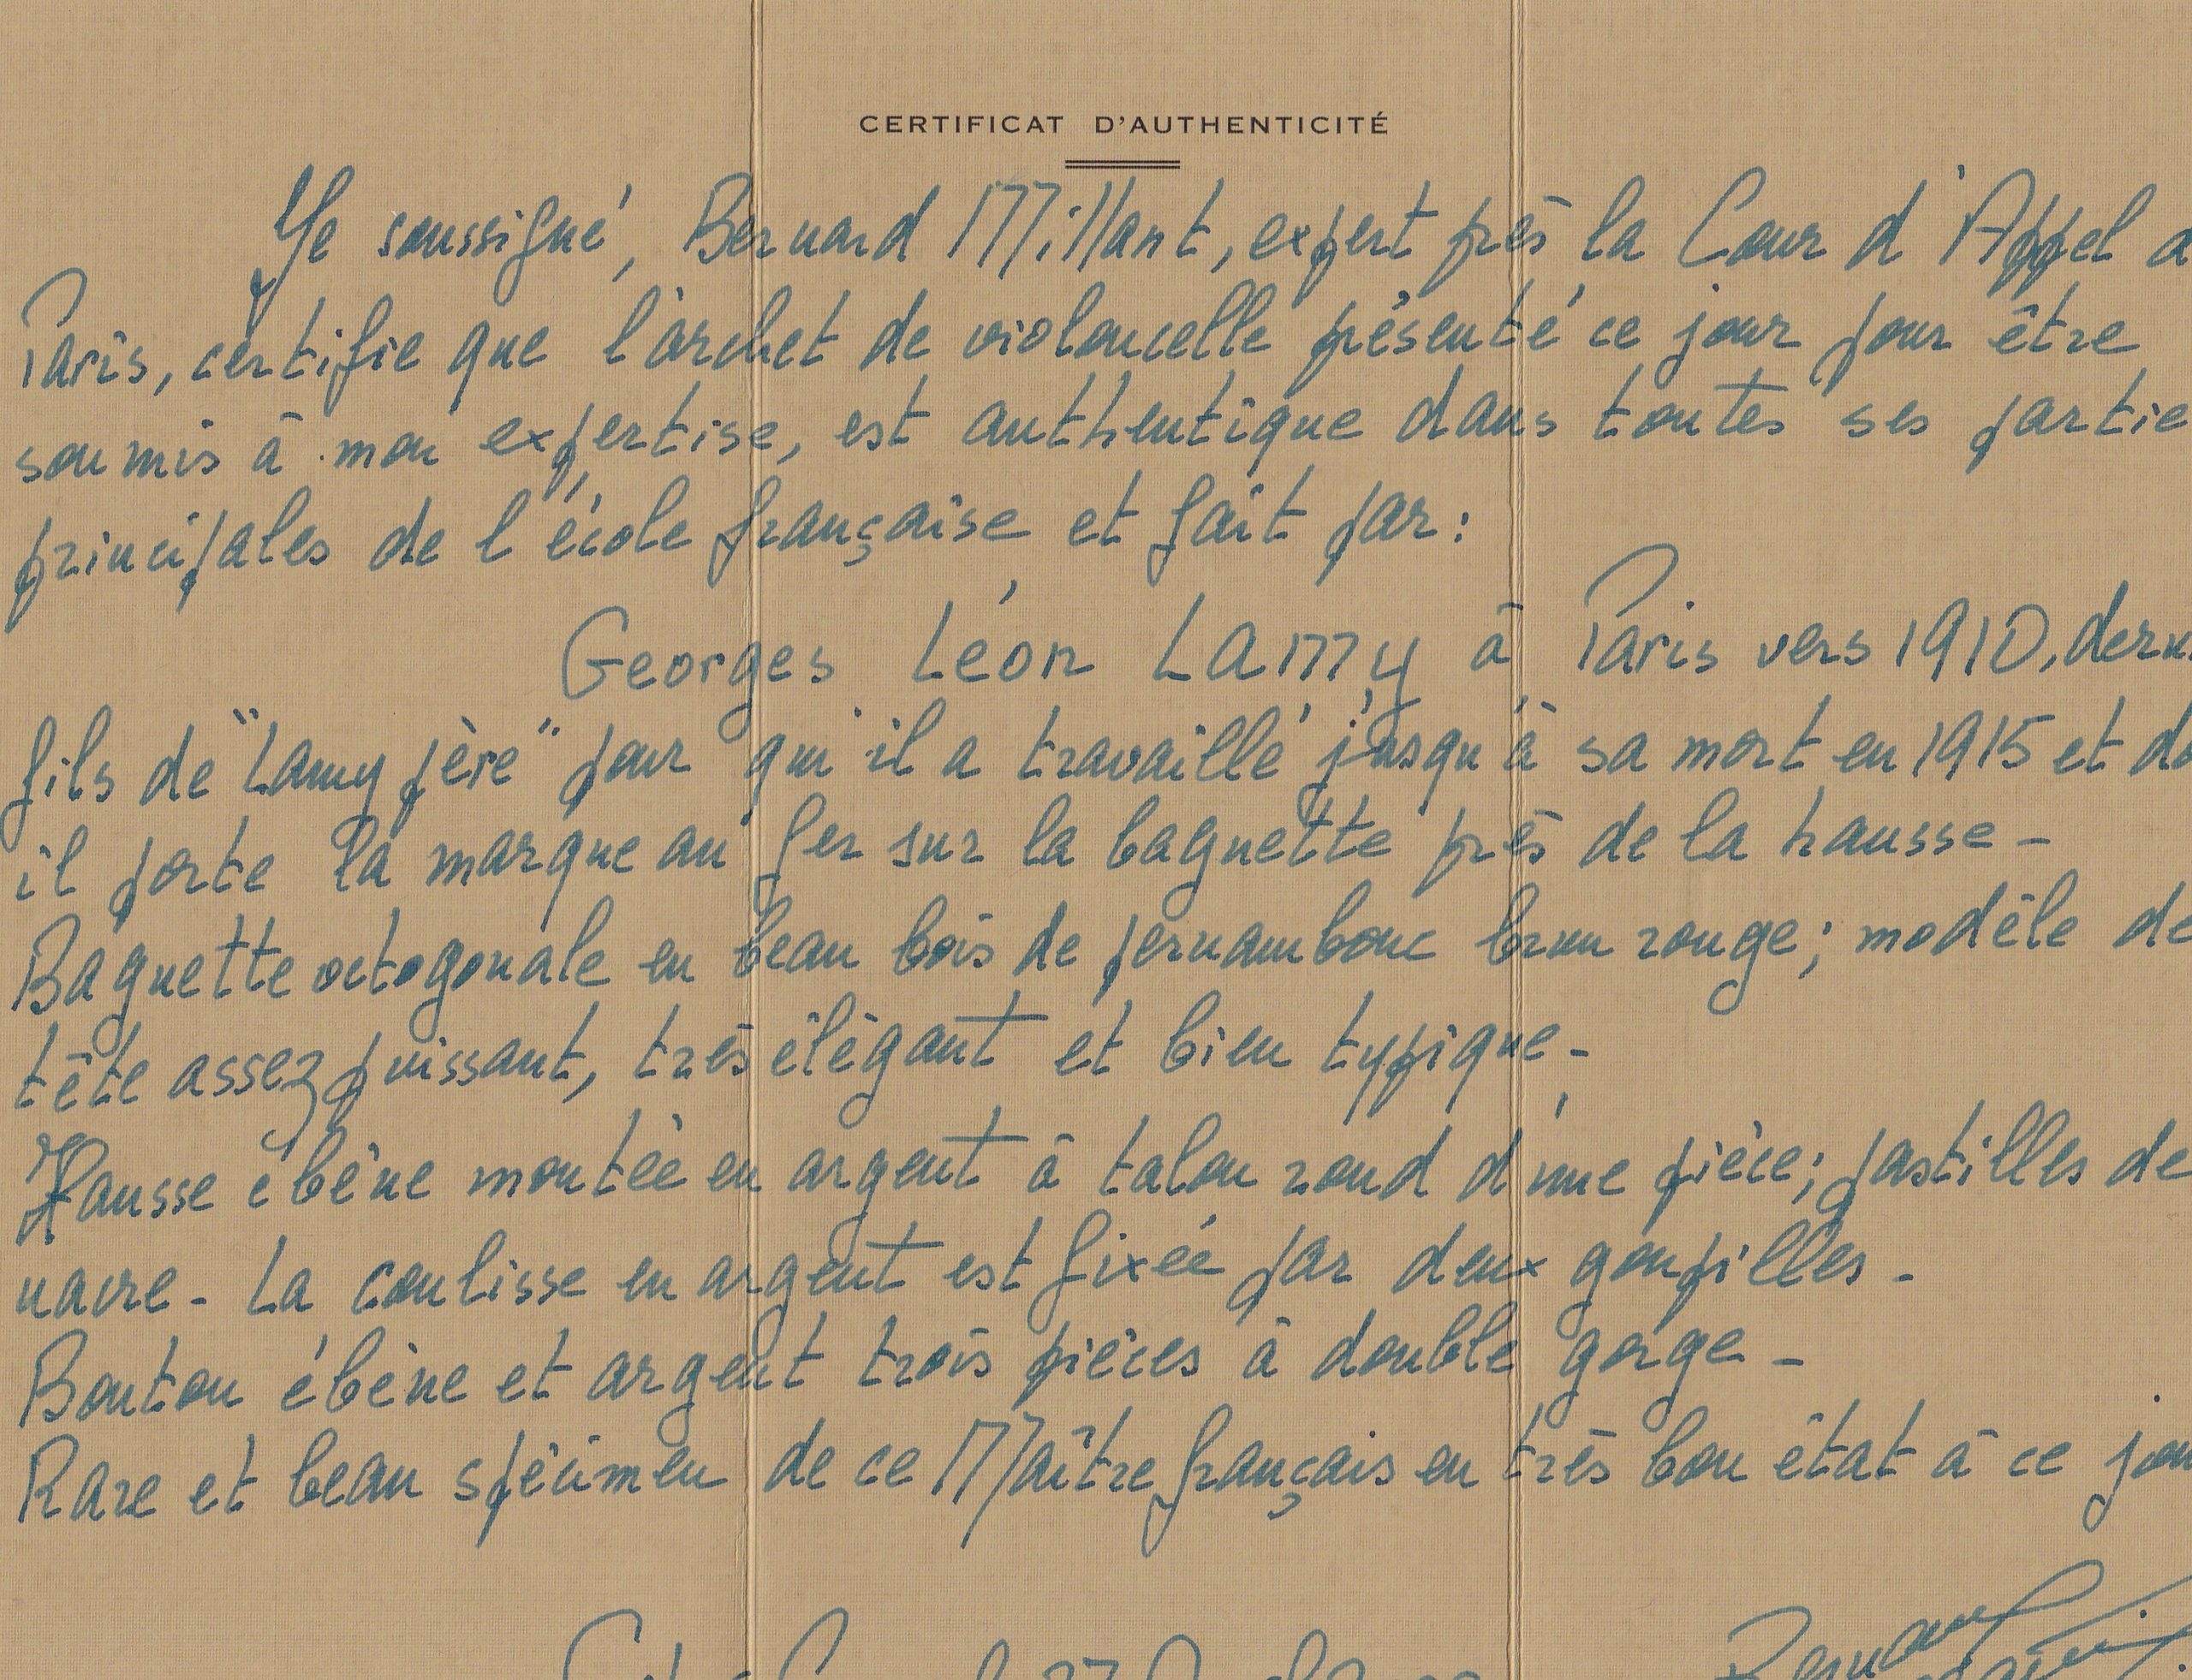 CERTIFICAT D'AUTHENTICITÉ
Je soussigné, Bernard Millant, expert près la Cour d'Appel d
Paris, certifie que l'archet de violoncelle présenté ce jour pour être
soumis à mon expertise, est authentique dans toutes ses partie
principales de l'école française et fait par:
Georges Léon Lamy à Paris vers 1910, derni
fils de "Lamy père" pour qui il a travaillé jusqu'à sa mort en 1915 et do
il porte la marque au fer sur la baguette près de la hausse -
Baguette octogonale en beau bois de pernambouc brun rouge; modèle de
tête assez puissant, très élégant et bien typique -
Hausse ébène montée en argent à talon rond d'une pièce; pastilles de
nacre - La coulisse en argent est fixée par deux goupilles -
Bouton ébène et argent trois pièces à double gorge -
Rare et beau spécimen de ce Maître français en très bon état à ce jou
Bernard